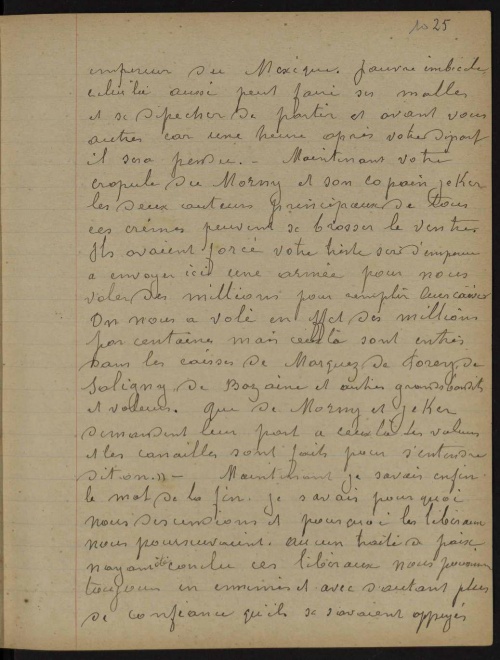 10 25
empereur du Mexique. pauvre imbecile
celui là aussi peut faire ses malles
et se dépêcher de partir et avant vous
autres car une heure après votre départ
il sera perdu. — Maintenant votre
crapule du Morny et son copain jeKer
les deux auteurs principaux de tous
ces crimes peuvent se brosser le ventre.
Ils avaient forcé votre triste sire d'empereur
a envoyer ici une armée pour nous
voler des millions pour remplir leurs caisses
On nous a volé en effet des millions
par centaines mais ceux là sont entrés
dans les caisses de Marquez de Forey, de
Saligny de Bazaine et autres grands bandits
et voleurs. que de Morny et jeKer
demandent leur part a ceux là les voleurs
et les canailles sont faits pour s'entendre
dit on. » — Maintenant je savais enfin
le mot de la fin. je savais pourquoi
nous descendions et pourquoi les libéraux
nous poursuivaient. aucun traité de paix
nayant été conclu ces libéraux nous
toujours en ennemis et avec d'autant plus
de confiance qu'ils se savaient appuyés